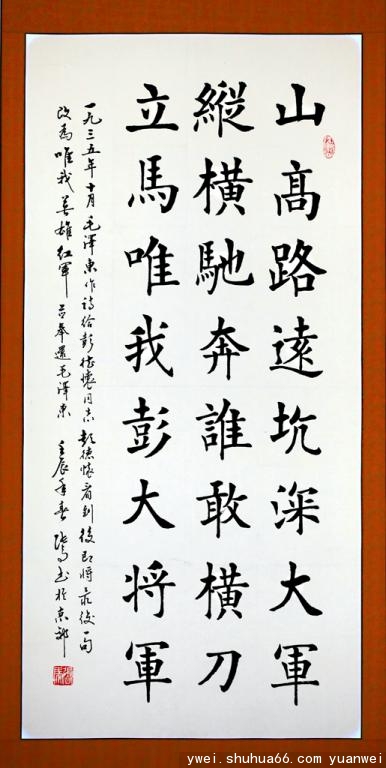 山髙路遠坑深大軍
縱橫馳奔誰敢橫刀
立馬唯我彭大将軍
一九三五年十月毛澤東作詩給彭德懷同志彭德懷看到後即将最後一句
改爲唯我英雄紅軍並奉還毛澤東 壬辰年春 书於京郊
ywei.shuhua66.com yuanwei